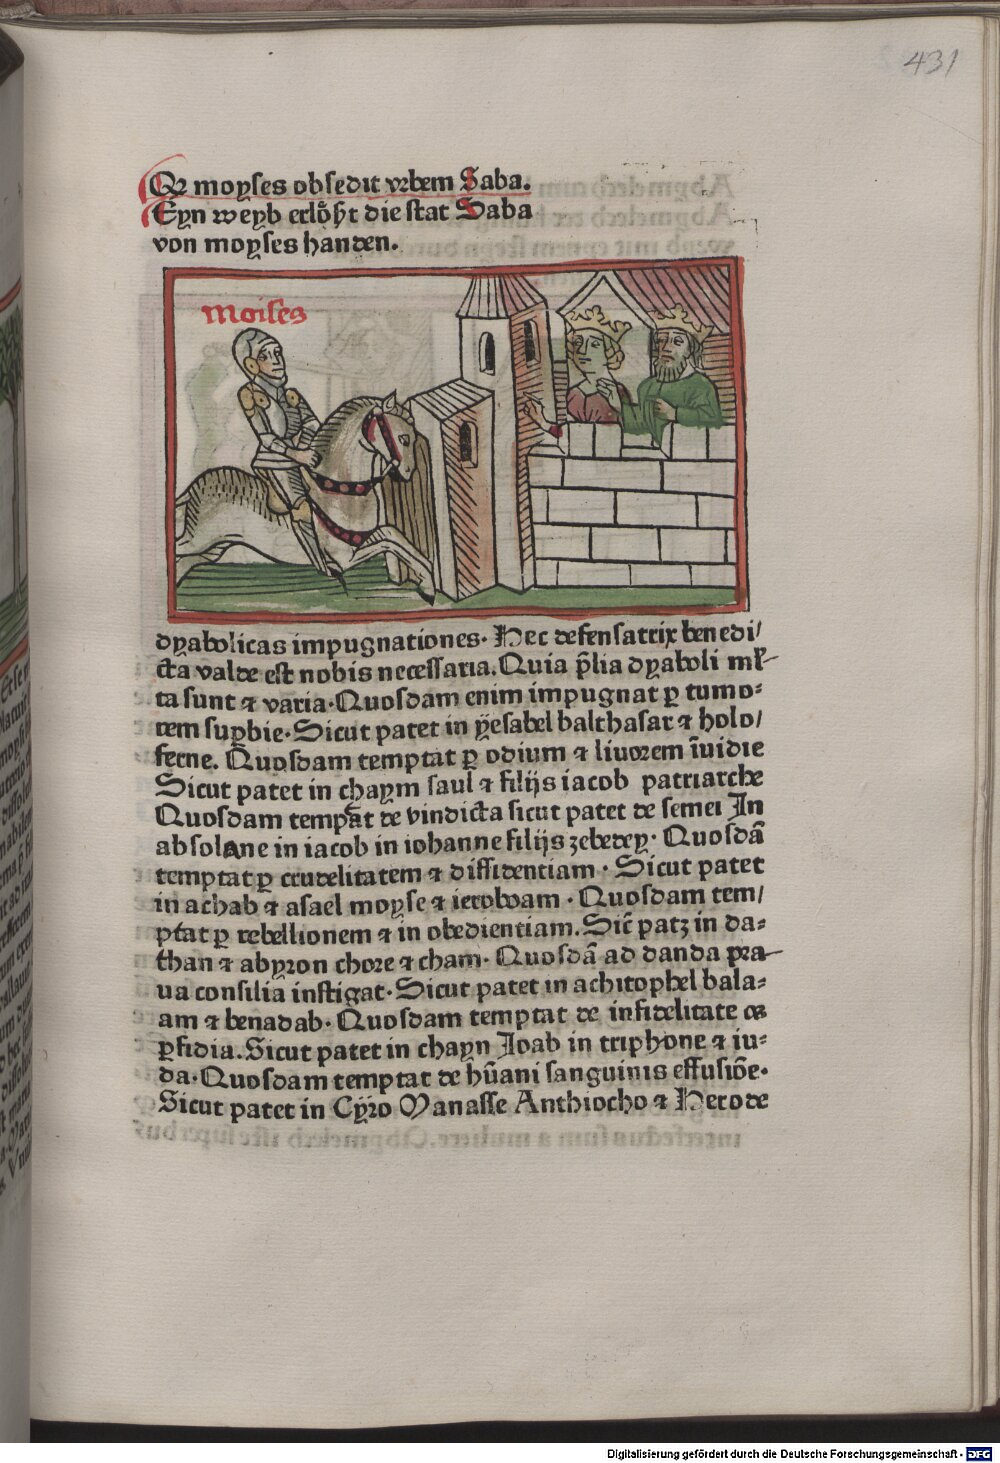 431
Qꝛ moyses obsedit vrbem Saba.
Eyn weyb erlößt die stat Saba
von moyses handen.
moises
dyabolicas impugnationes. Hec defensatrix benedi/
cta valde est nobis necessaria. Quia p̄lia dyaboli ml̄
ta sunt ⁊ varia. Quosdam enim impugnat ꝑ tumo⸗
rem suꝑbie. Sicut patet in yesabel balthasar ⁊ holo/
ferne. Quosdam temptat ꝑ odium ⁊ livorem īuidie
Sicut patet in chaym saul ⁊ filijs iacob patriarche
Quosdam temptat de vindicta sicut patet de semei In
absolone in iacob in iohanne filijs zebedey. Quosdā
temptat ꝑ crudelitatem ⁊ diffidentiam. Sicut patet
in achab ⁊ asael moyse ⁊ ieroboam. Quosdam tem/
ptat ꝑ rebellionem ⁊ in obedientiam. Sic̄ patꝫ in da⸗
than ⁊ abyron chore ⁊ cham. Quosdā ad danda pra
ua consilia instigat. Sicut patet in achitophel bala⸗
am ⁊ benadab. Quosdam temptat de infidelitate ⁊
ꝑfidia. Sicut patet in chayn Joab in triphone ⁊ iu⸗
da. Quosdam temptat de hūani sanguinis effusiōe.
Sicut patet in Cyro Manasse Anthiocho ⁊ Herode
Digitalisierung gefördert durch die Deutsche Forschungsgemeinschaft - DFG